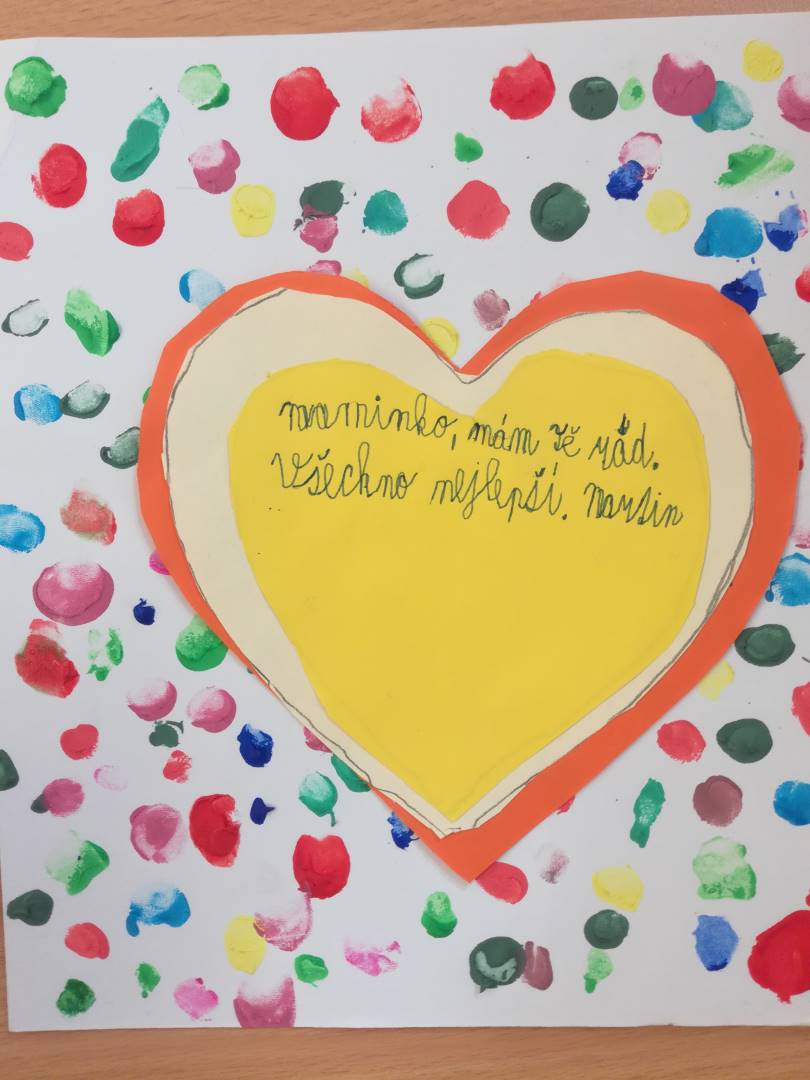 maminko, mám tě rád.
Všechno nejlepší. Martin